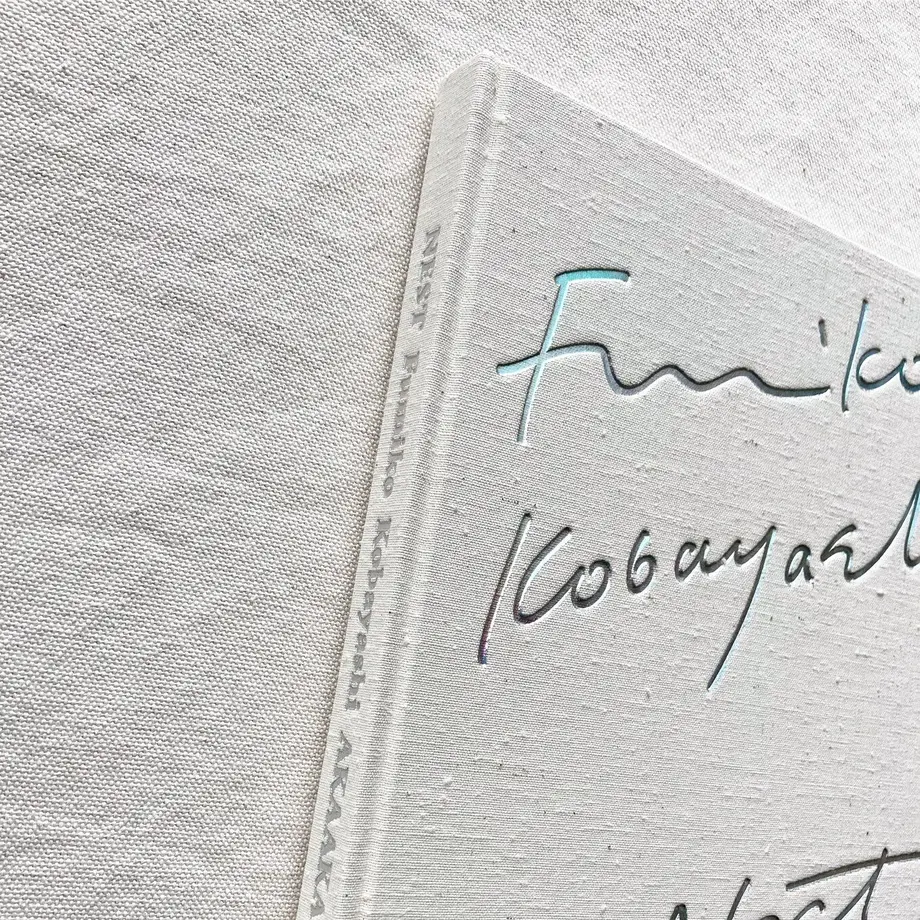 NEST Fumiko Kobayashi AKAAKA
Fumiko
Kobayash
Nest